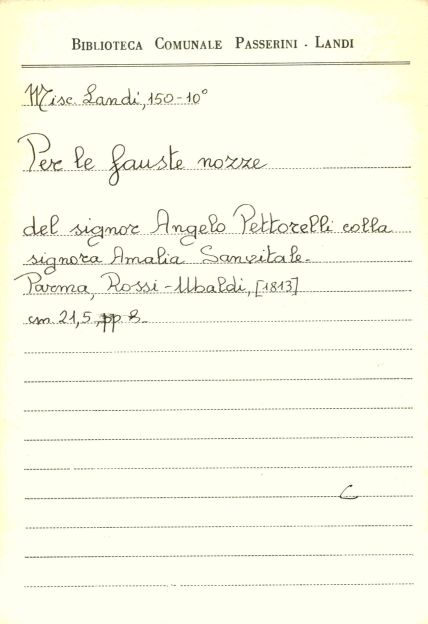 BIBLIOTECA COMUNALE PASSERINI - LANDI
Misc. Landi, 150-10°
Per le fauste nozze
del signor Angelo Pettorelli colla
signora Amalia Sanvitale.
Parma, Rossi-Ubaldi, [1813]
cm. 21,5, pp 8.
C